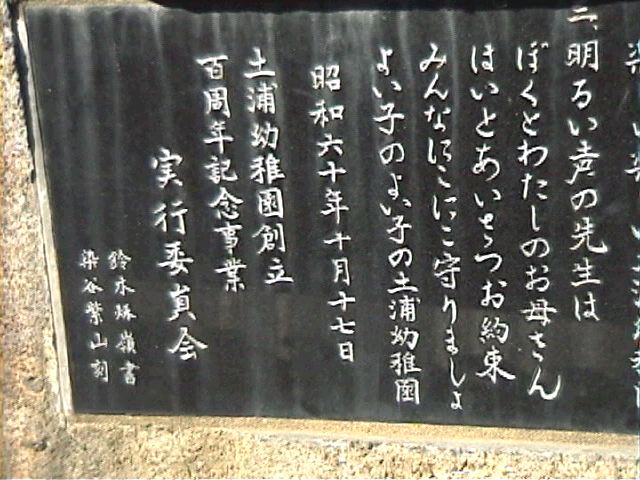 二、明るい声の先生は
ぼくとわたしのお母さん
はいとあいさつお約束
みんなにこにこ守りましょ
よい子のよい子の土浦幼稚園
昭和六十年十月十七日
土浦幼稚園創立
百周年記念事業
実行委員会
鈴木 嶺書
染谷紫山刻